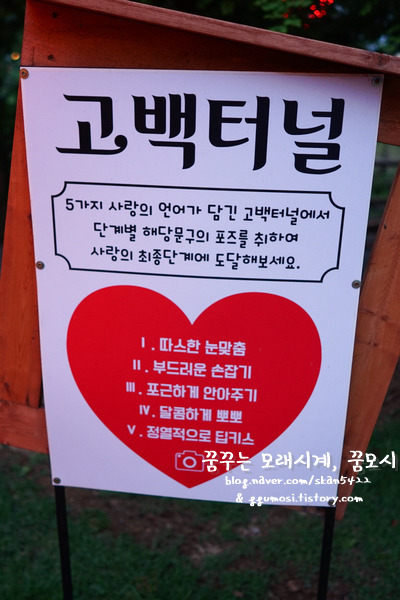 고백터널
5가지 사랑의 언어가 담긴 고백터널에서
단계별 해당문구의 포즈를 취하여
사랑의 최종단계에 도달해보세요.
Ⅰ. 따스한 눈맞춤
Ⅱ. 부드러운 손잡기
Ⅲ. 포근하게 안아주기
Ⅳ. 달콤하게 뽀뽀
Ⅴ. 정열적으로 딥키스
꿈꾸는 모래시계, 꿈모시
blog.naver.com/skan5422
& ggumosi.tistory.com